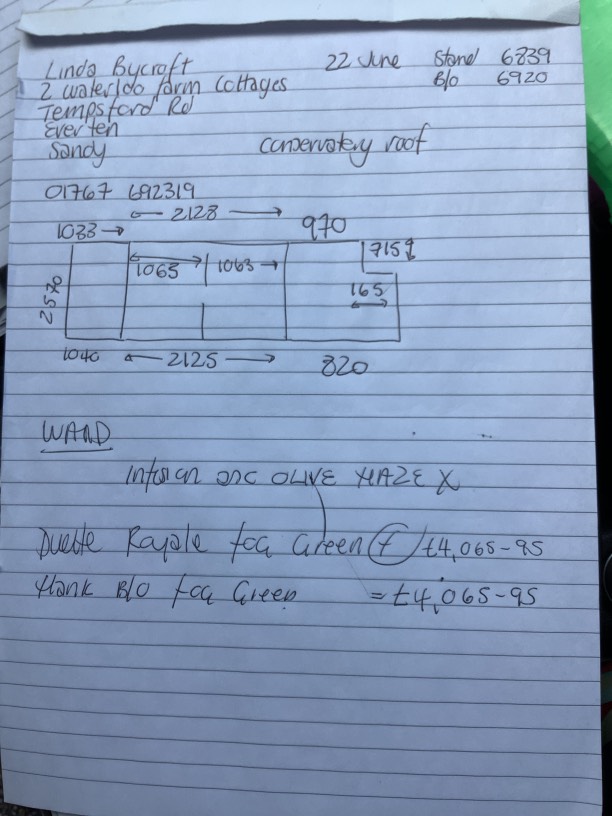 Linda Bycroft 22 June Stand 6839
2 waterloo farm Cottages B/o 6920
Tempsford Rd
Everten
Sandy conservatory roof
01767 692319
← 2128 →
1033 → 970
1065 1063 → 715
2570
165
1040 ← 2125 → 820
WAND
Infusion OLIVE HAZE X
Duette Royale fog Green £4,065-95
B/o fog Green = £4,065-95